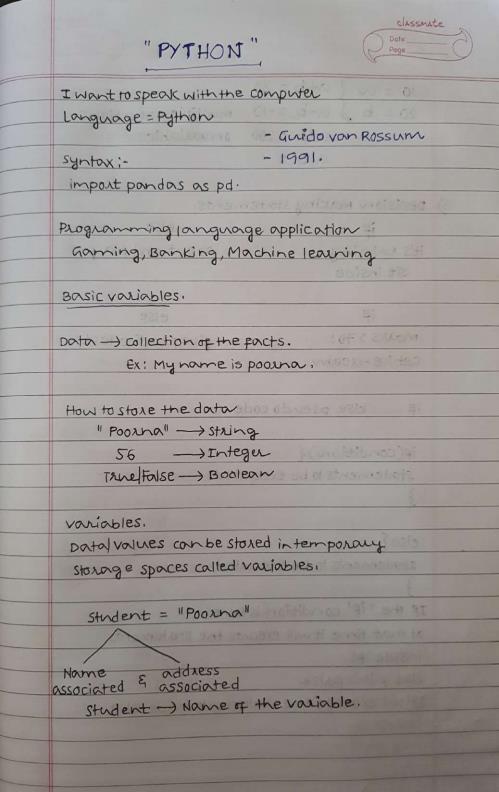 classmate
Date
Page
"PYTHON"
I want to speak with the computer
Language = Python
- Guido van Rossum
Syntax :-
- 1991.
import pandas as pd.
Programming language application :-
Gaming, Banking, Machine learning
Basic variables.
Data → Collection of the facts.
Ex: My name is poorna.
How to store the data
"Poorna" → String
56 → Integer
True/False → Boolean
Variables.
Data/values can be stored in temporary
Storage spaces called variables.
Student = "Poorna"
Name & address
associated associated
Student → Name of the variable.